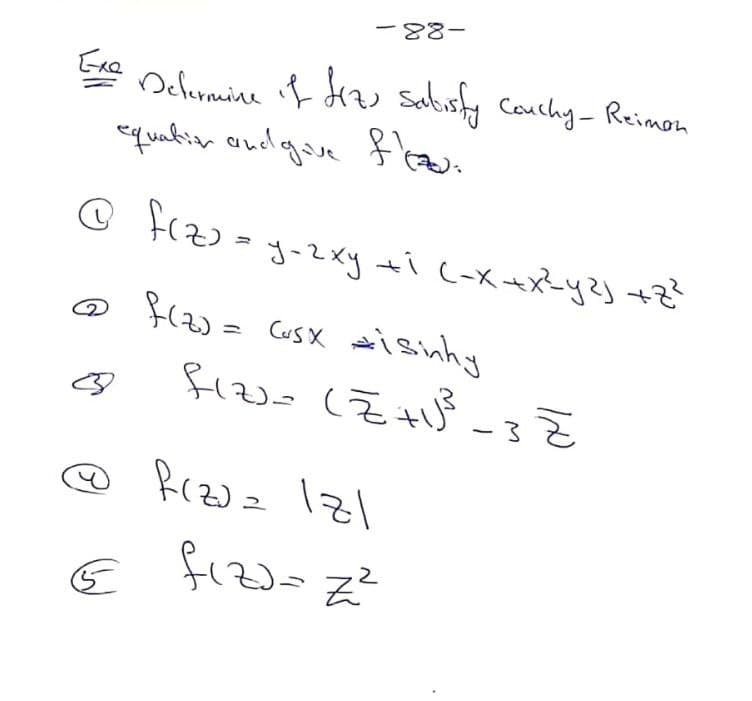 -88-
Exa Determine if f(z) satisfy Couchy - Reimon
equation and give f'(z).
① f(z) = y-2xy +i (-x+x²-y²) +z²
② f(z) = Cosx - isinhy
③ f(z) = (z̅+1)³ - 3 z̅
④ f(z) = |z|
⑤ f(z) = z²